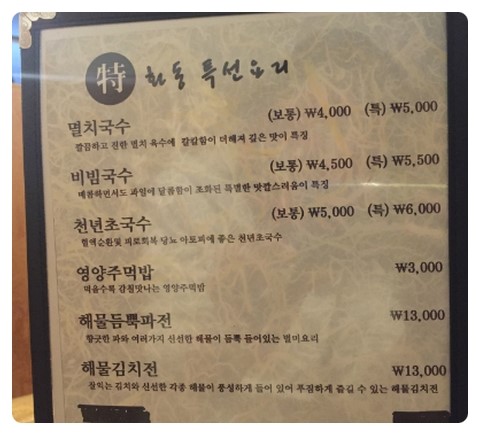 特 화동 특선요리
멸치국수 (보통) ₩4,000 (특) ₩5,000
깔끔하고 진한 멸치 육수에 칼칼함이 더해져 깊은 맛이 특징
비빔국수 (보통) ₩4,500 (특) ₩5,500
매콤하면서도 과일에 달콤함이 조화된 특별한 맛깔스러움이 특징
천년초국수 (보통) ₩5,000 (특) ₩6,000
혈액순환및 피로회복 당뇨 아토피에 좋은 천년초국수
영양주먹밥 ₩3,000
먹을수록 감칠맛나는 영양주먹밥
해물듬뿍파전 ₩13,000
향긋한 파와 여러가지 신선한 해물이 듬뿍 들어있는 별미요리
해물김치전 ₩13,000
잘익는 김치와 신선한 각종 해물이 풍성하게 들어 있어 푸짐하게 즐길 수 있는 해물김치전